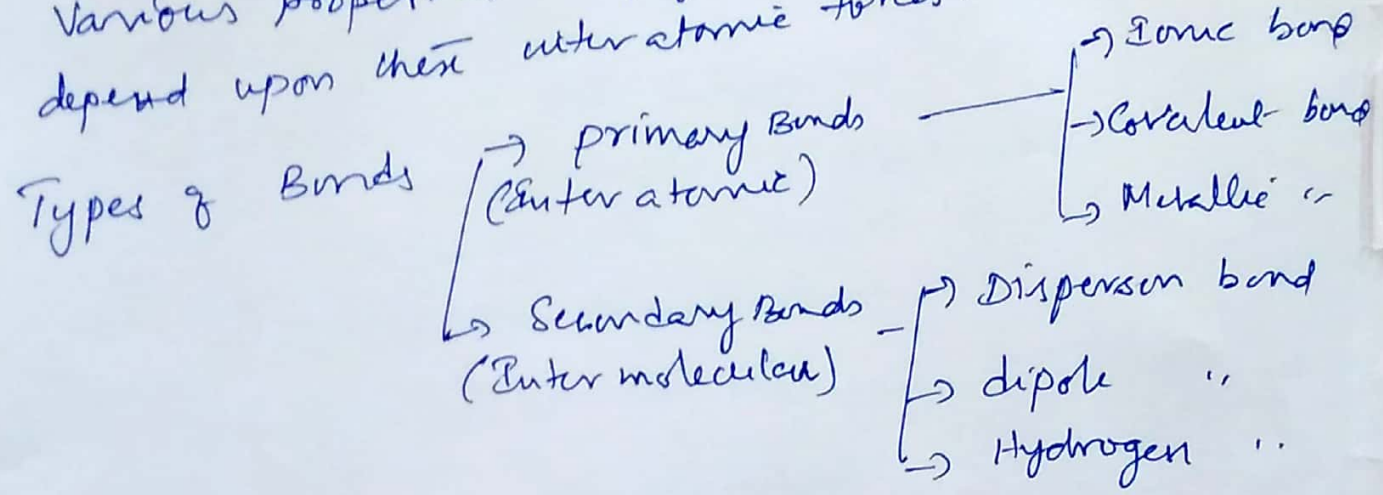 Various
depend upon these interatomic forces
Types of Bonds
→ primary Bonds
(Inter atomic)
→ Ionic bond
→ Covalent bond
→ Metallic "
→ Secondary Bonds
(Inter molecular)
→ Dispersion bond
→ dipole "
→ Hydrogen "